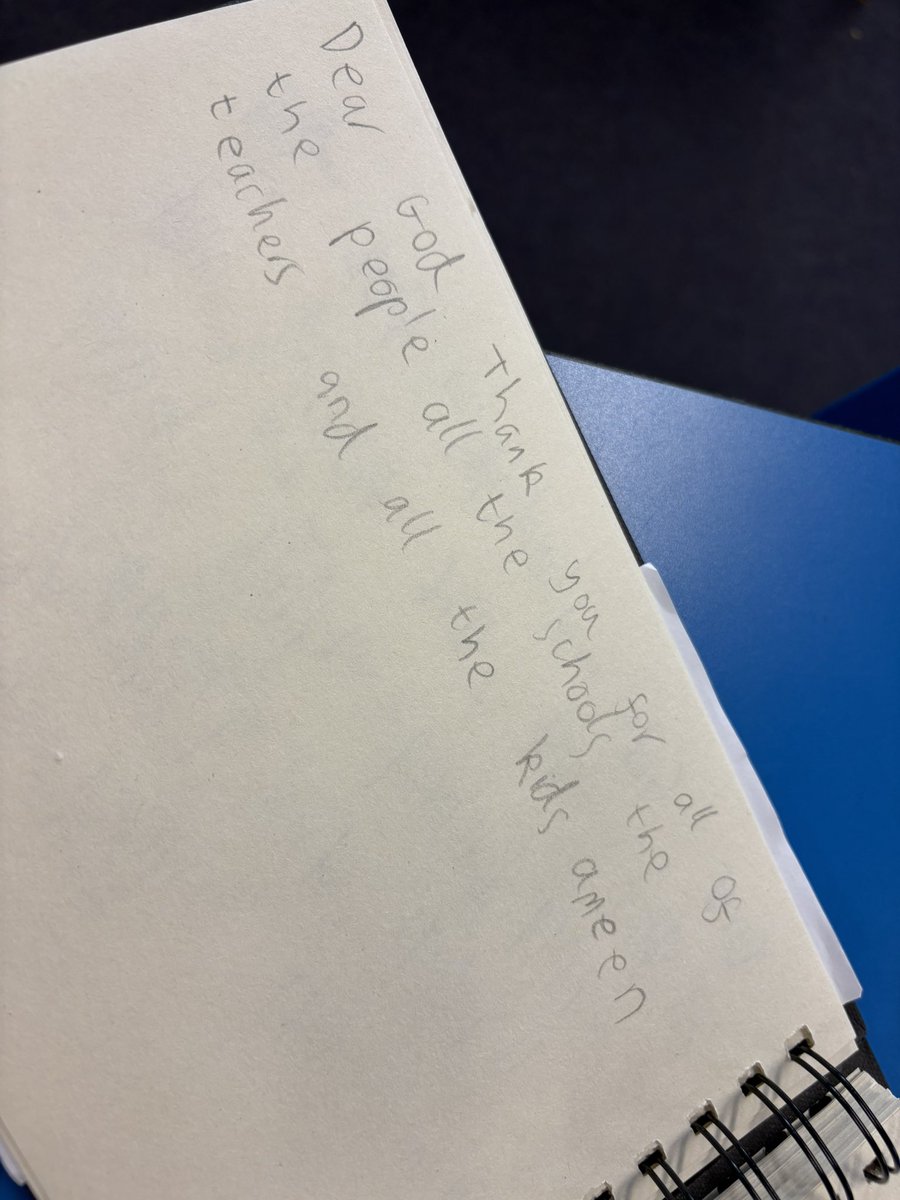 Dear God thank you for all of
the people all the schools the
teachers and all the kids ameen